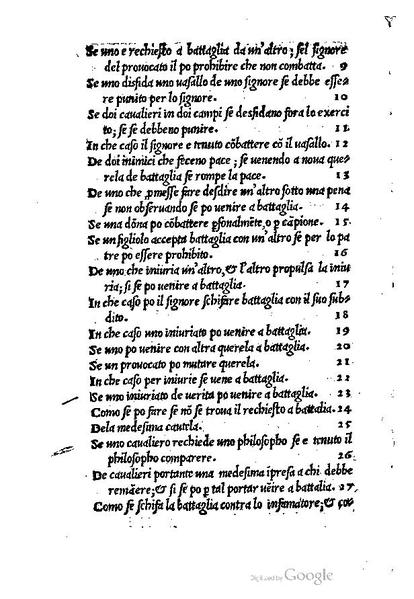 Se uno e rechiesto a battaglia da un'altro; sel signore
del provocato il po prohibire che non combatta. 9
Se uno disfida uno uasallo de uno signore se debbe esse=
re punito per lo signore. 10
Se doi caualieri in doi campi se desfidano fora lo exerci
to; se se debbeno punire. 11
In che caso il signore e tenuto cõbattere cõ il uasallo. 12
De doi inimici che feceno pace; se uenendo a noua que=
rela de battaglia se rompe la pace. 13
De uno che ꝓmesse fare desdire un'altro sotto una pena
se non obseruando se po uenire a battaglia. 14
Se una dõna po cõbattere ꝑsonalmẽte, o ꝑ cãpione. 15
Se un figliolo accepta battaglia con un'altro se per lo pa
tre po essere prohibito. 16
De uno che iniuria un'altro, & l'altro propulsa la iniu
ria; si se po uenire a battaglia. 17
In che caso po il signore schifare battaglia con il suo sub=
dito. 18
In che caso uno iniuriato po uenire a battaglia. 19
Se uno po uenire con altra querela a battaglia. 20
Se un prouocato po mutare querela. 21
In che caso per iniurie se uene a battaglia. 22
Se uno iniuriato de uerita po uenire a battaglia. 23
Como se po fare se nõ se troua il rechiesto a battalia. 24
Dela medesima cautela. 25
Se uno caualiero rechiede uno philosopho se e tenuto il
philosopho comparere. 26
De caualieri portante una medesima ĩpresa a chi debbe
remãere; & si se po ꝑ tal portar uẽire a battalia. 27
Como se schifa la battaglia contra lo infamatore; &
Digitized by Google